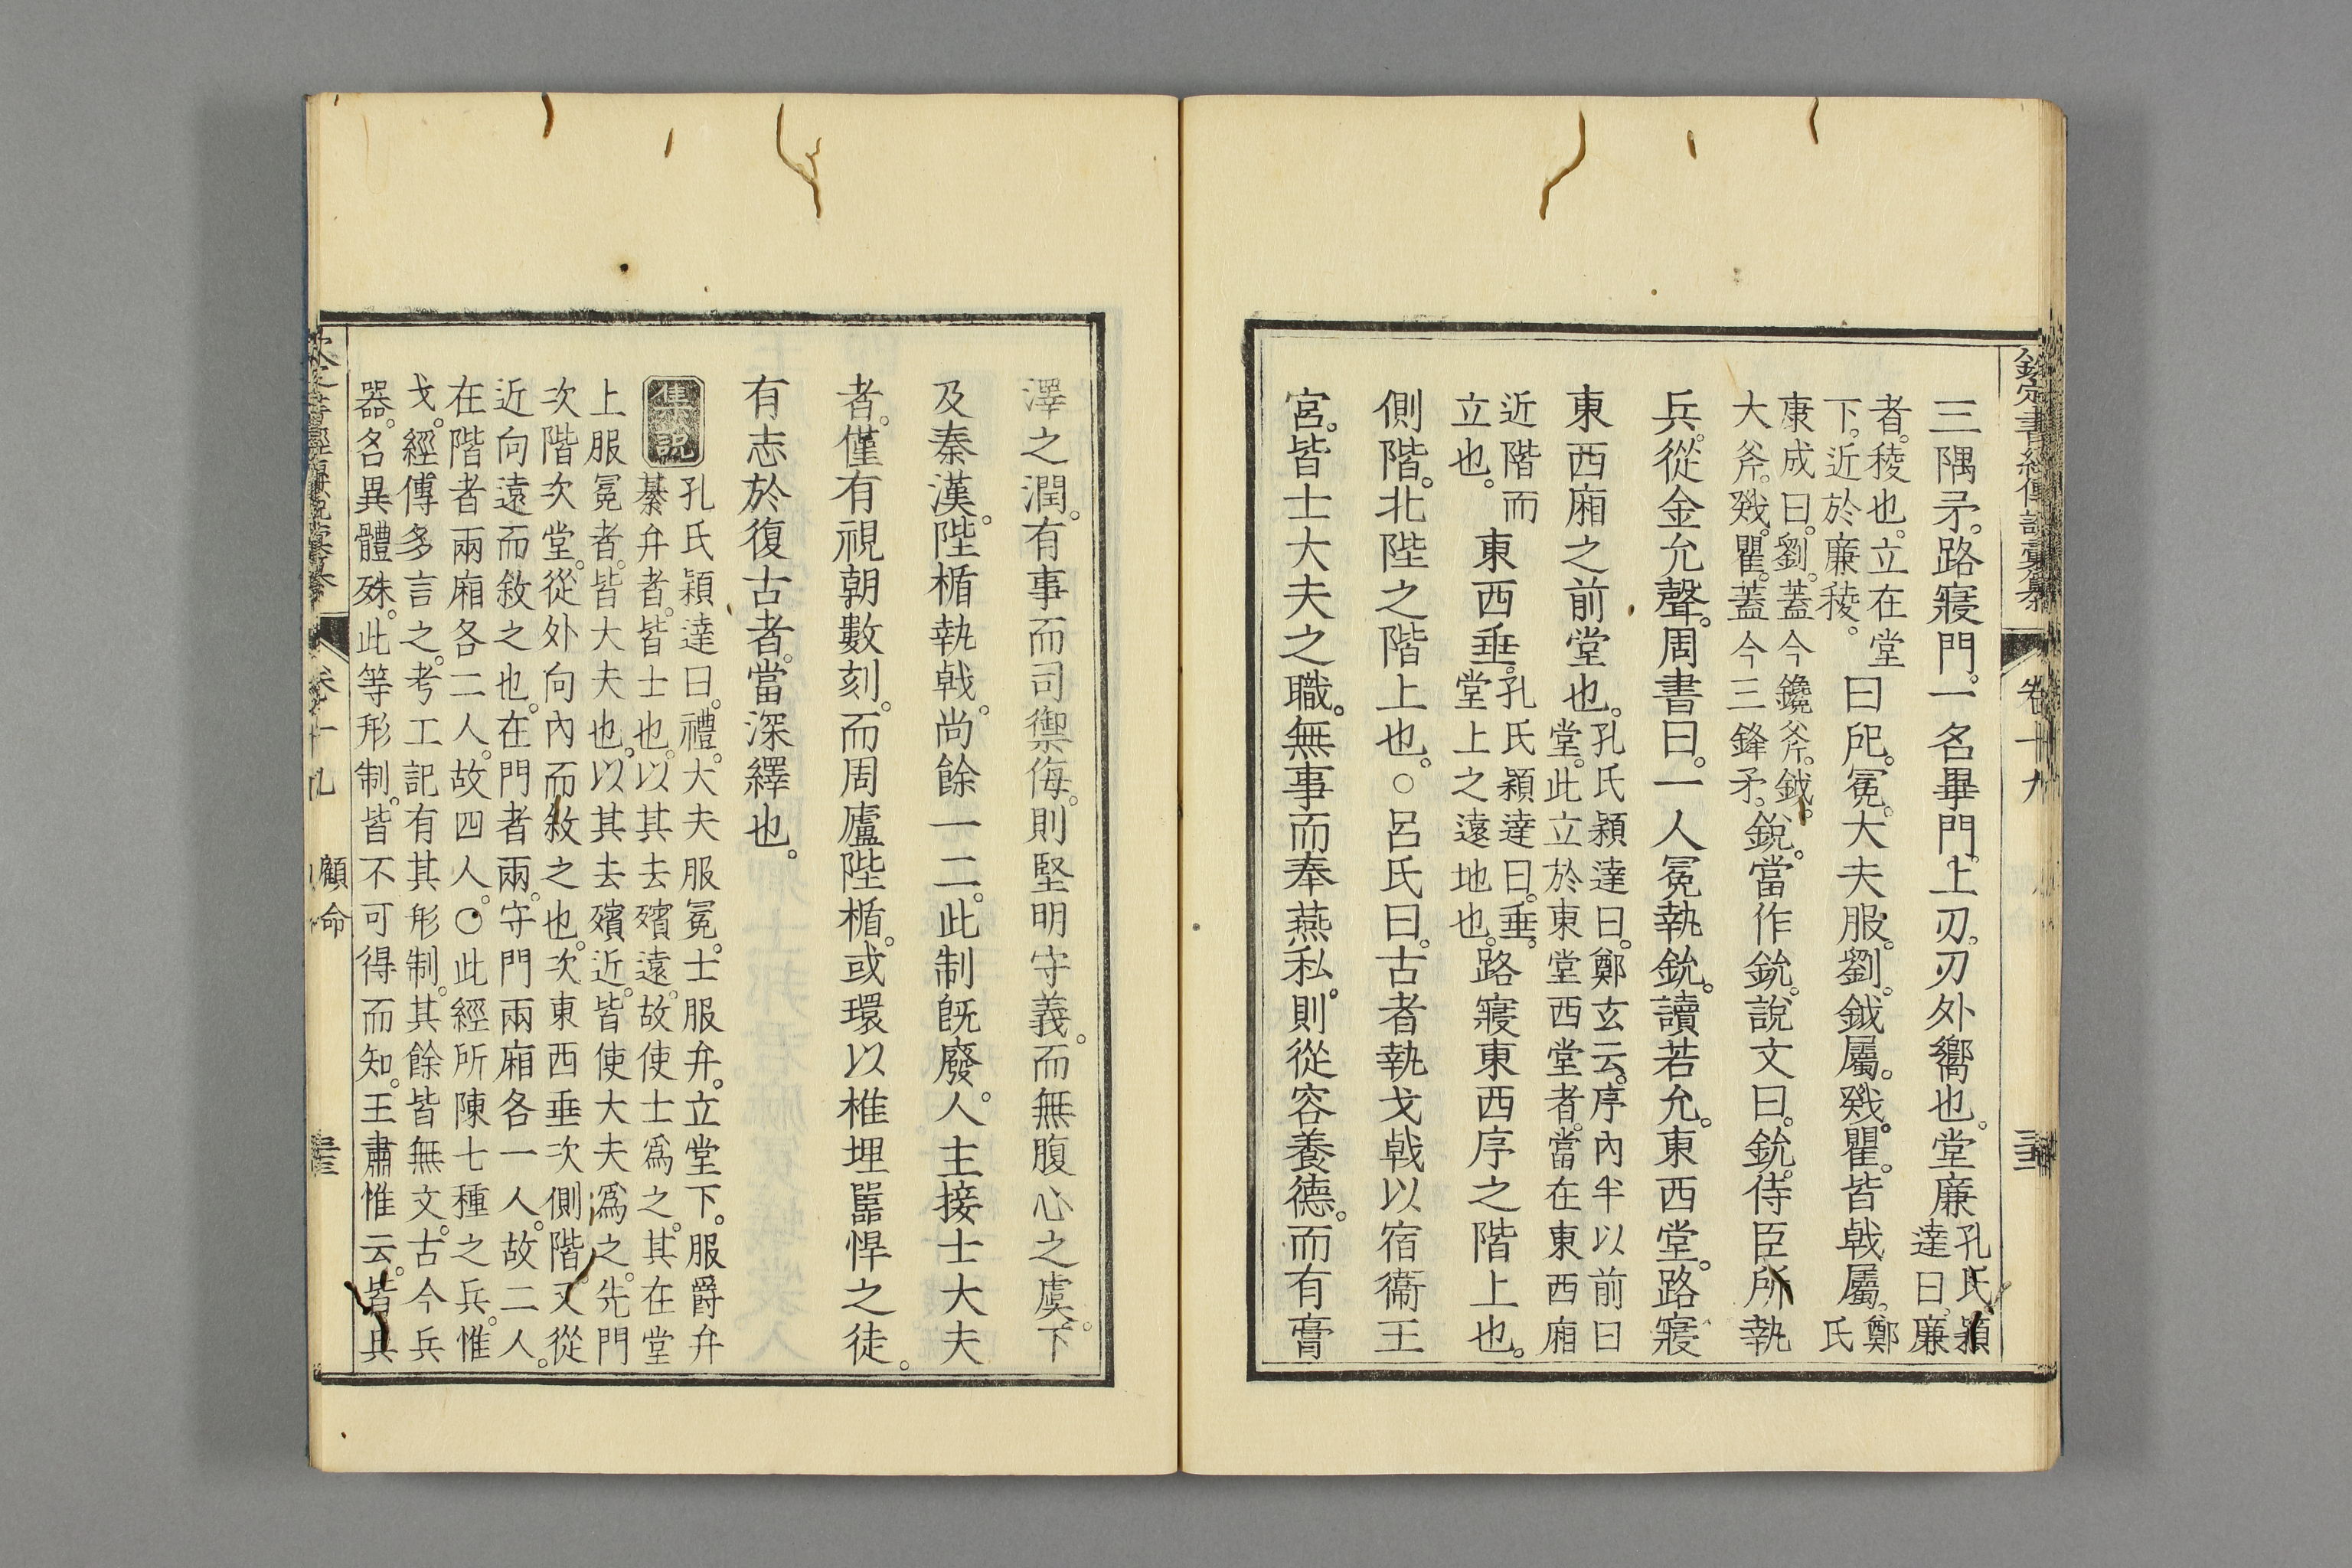 欽定書經傳說彙纂
卷十九
三隅矛。路寢門。一名畢門。上刃。刃外嚮也。堂廉
孔氏穎
達曰。廉
者。稜也。立在堂
下。近於廉稜。
曰戺。冕。大夫服。劉。鉞屬。戣。瞿。皆戟屬。
鄭
氏
康成曰。劉。蓋今鑱斧。鉞。
大斧。戣。瞿。蓋今三鋒矛。
銳。當作鈗。說文曰。鈗。侍臣所執
兵。從金允聲。周書曰。一人冕執鈗。讀若允。東西堂。路寢
東西廂之前堂也。
孔氏穎達曰。鄭玄云。序內半以前曰
堂。此立於東堂西堂者。當在東西廂
近階而
立也。
東西垂。
孔氏穎達曰。垂。
堂上之遠地也。
路寢東西序之階上也。
側階。北陛之階上也。○呂氏曰。古者執戈戟以宿衞王
宮。皆士大夫之職。無事而奉燕私。則從容養德。而有膏
澤之潤。有事而司禦侮。則堅明守義。而無腹心之虞。下
及秦漢。陛楯執戟。尚餘一二。此制既廢。人主接士大夫
者。僅有視朝數刻。而周廬陛楯。或環以椎埋嚚悍之徒。
有志於復古者。當深繹也。
集說
孔氏穎達曰。禮。大夫服冕。士服弁。立堂下。服爵弁
綦弁者。皆士也。以其去殯遠。故使士爲之。其在堂
上服冕者。皆大夫也。以其去殯近。皆使大夫爲之。先門
次階次堂。從外向內而敘之也。次東西垂次側階。又從
近向遠而敘之也。在門者兩。守門兩廂各一人。故二人。
在階者兩廂各二人。故四人。○此經所陳七種之兵。惟
戈。經傳多言之。考工記有其形制。其餘皆無文。古今兵
器。名異體殊。此等形制。皆不可得而知。王肅惟云。皆兵
顧命